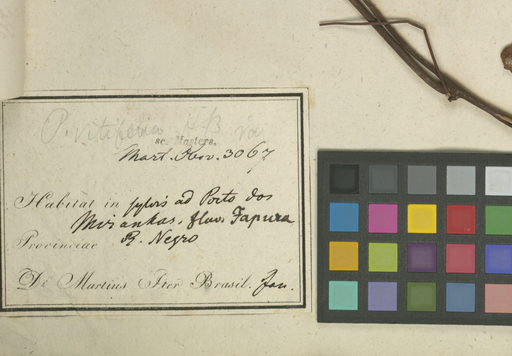 P. vitifolia HB va
sec. Masters.
Mart. Obsv. 3067
Habitat in sylvis ad Porto dos
Miranhas, fluv. Japura
Provinciae R. Negro
De Martius Iter Brasil. Jan.